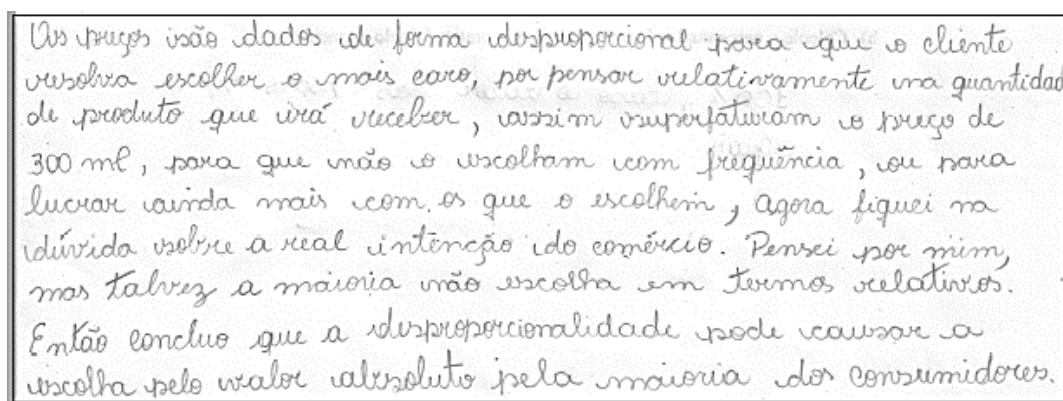 Os preços são dados de forma desproporcional para que o cliente
resolva escolher o mais caro, por pensar relativamente na quantidad
de produto que irá receber, assim superfaturam o preço de
300 ml, para que não o escolham com frequência, ou para
lucrar ainda mais com os que o escolhem, agora fiquei na
dúvida sobre a real intenção do comércio. Pensei por mim,
mas talvez a maioria não escolha em termos relativos.
Então concluo que a desproporcionalidade pode causar a
escolha pelo valor absoluto pela maioria dos consumidores.